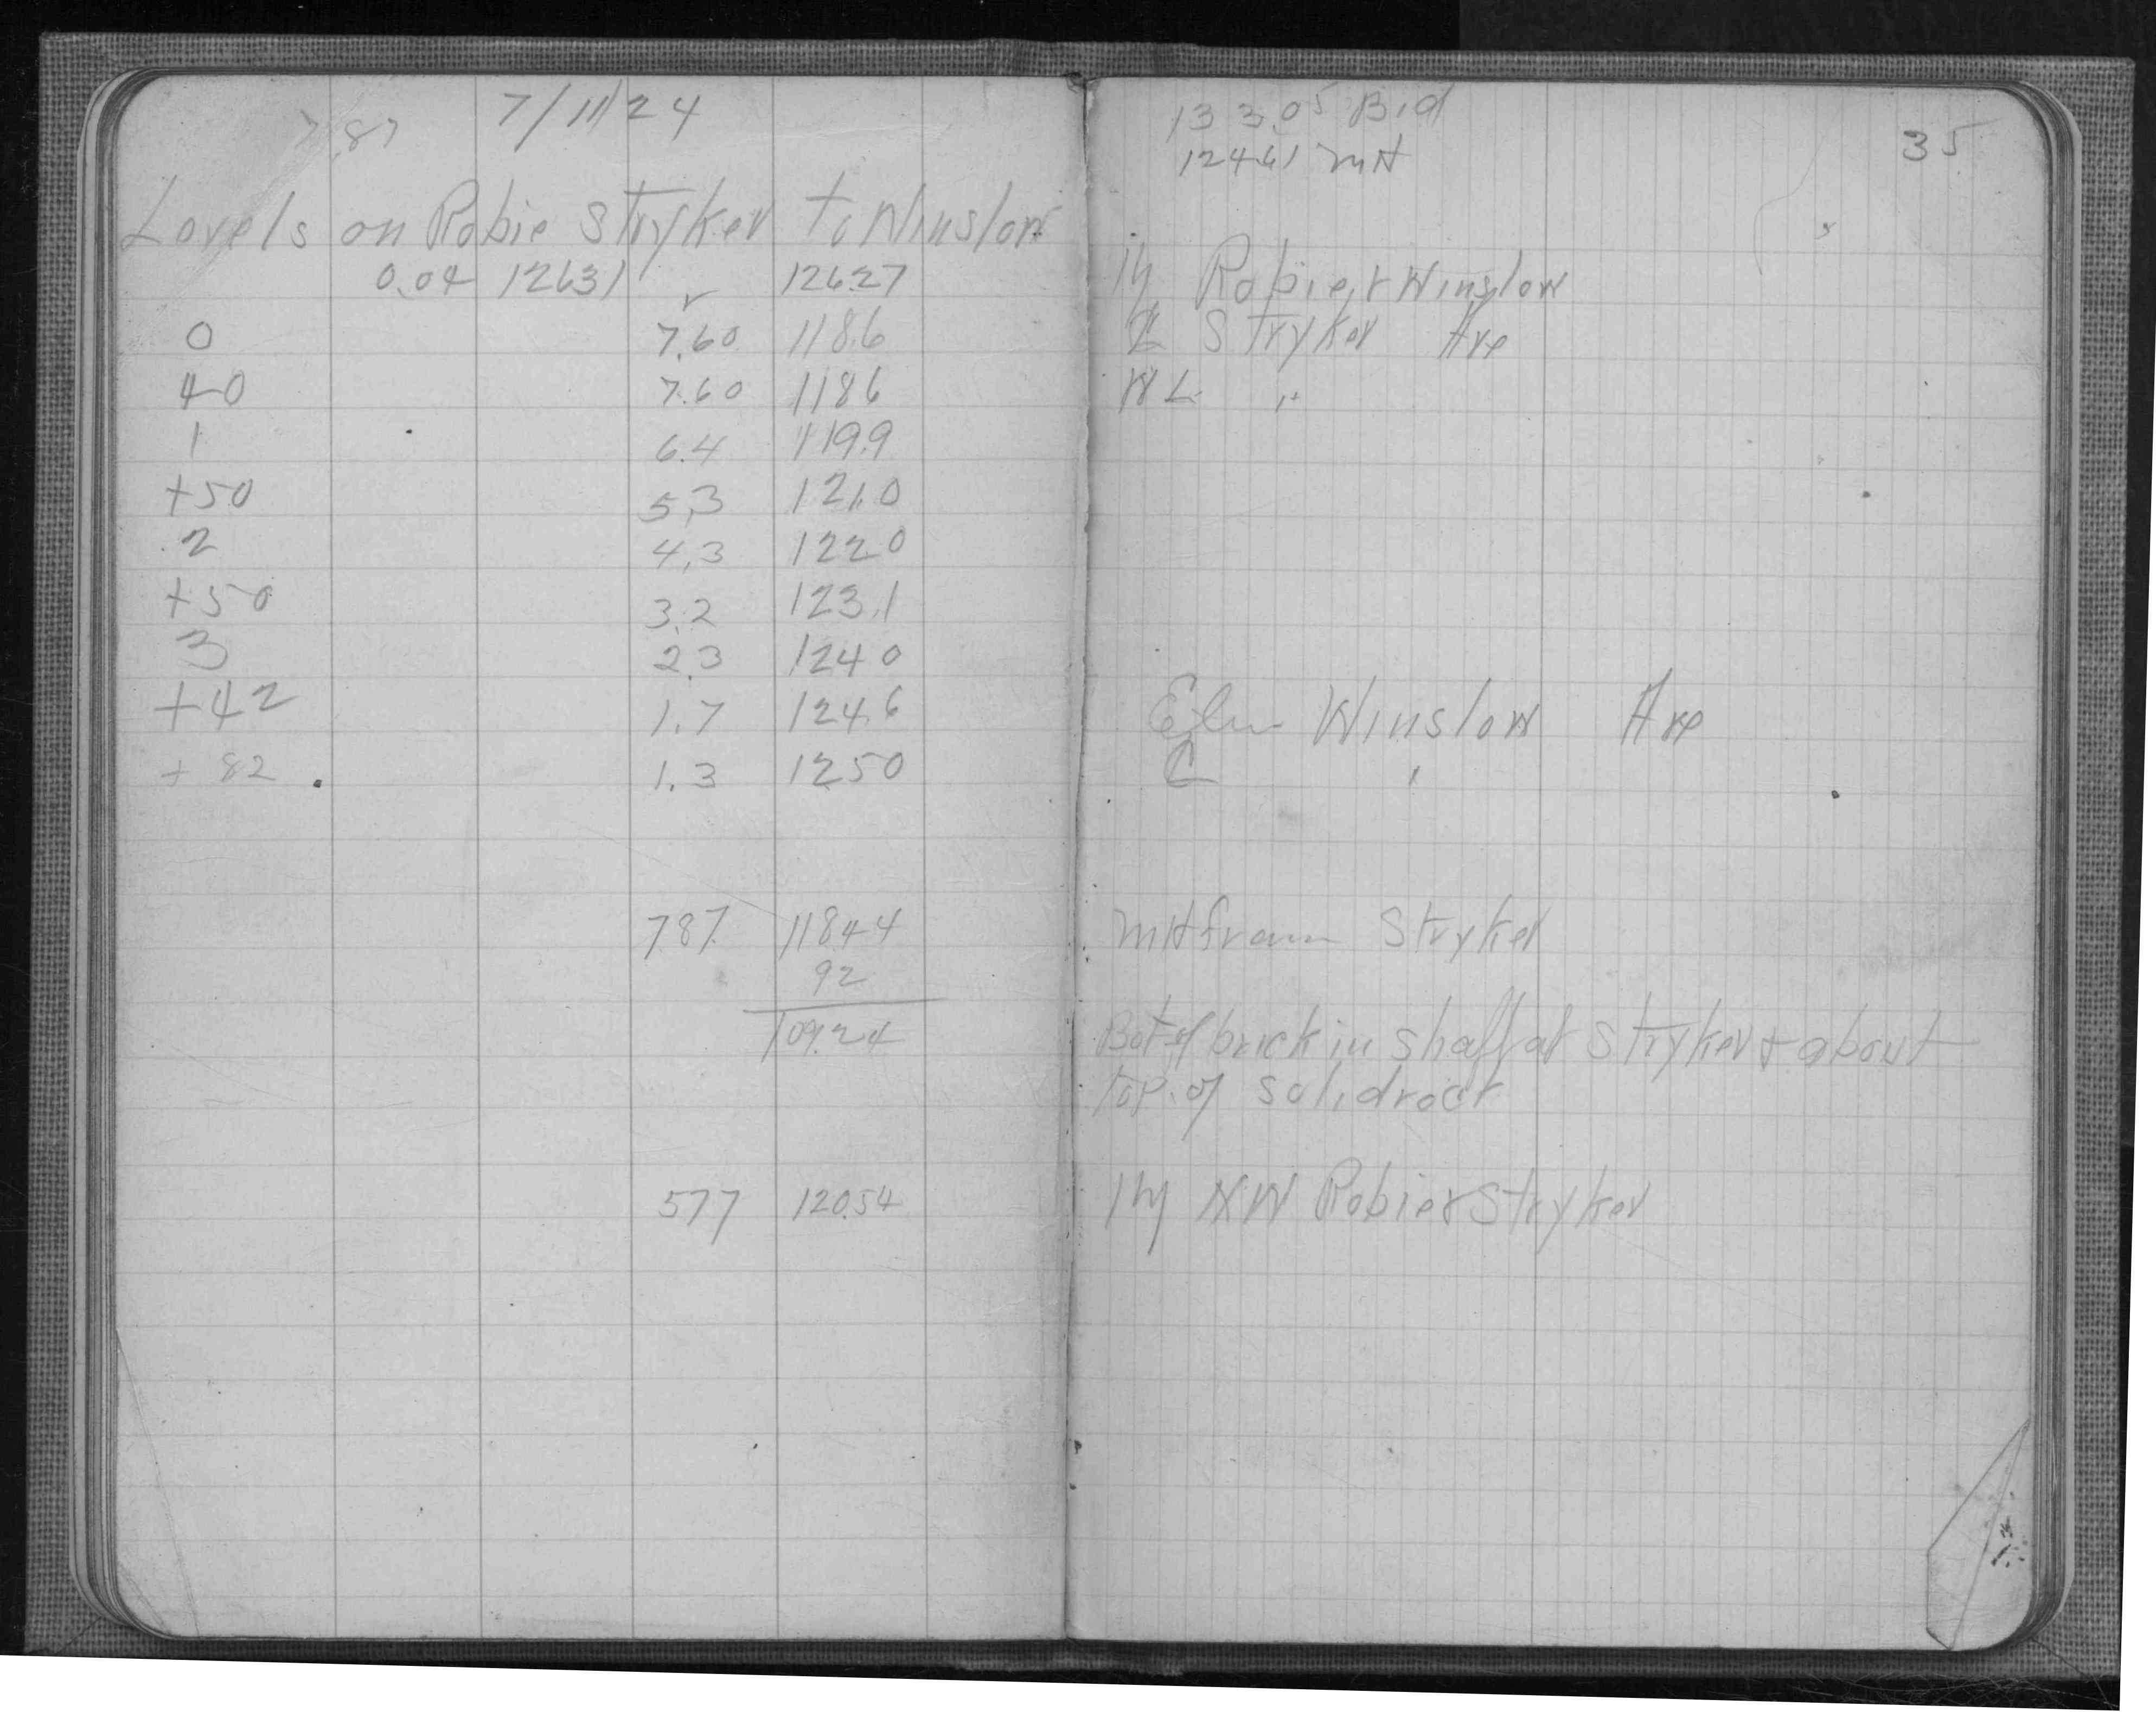 7/11/24
7.87
Levels on Robie Stryker to Winslow
0.04 126.31 126.27
0 7.60 118.6
40 7.60 118.6
1 6.4 119.9
+50 5.3 121.0
2 4.3 122.0
+50 3.2 123.1
3 2.3 124.0
+42 1.7 124.6
+82 1.3 125.0
7.87 118.44
92
109.24
5.77 120.54
133.05 Bid
124.61 MH
35
Robie & Winslow
Stryker Ave
WL "
Winslow Ave
"
MH fram Stryker
Bot of brick in shaft at Stryker & about
top of solid rock
NW Robie & Stryker